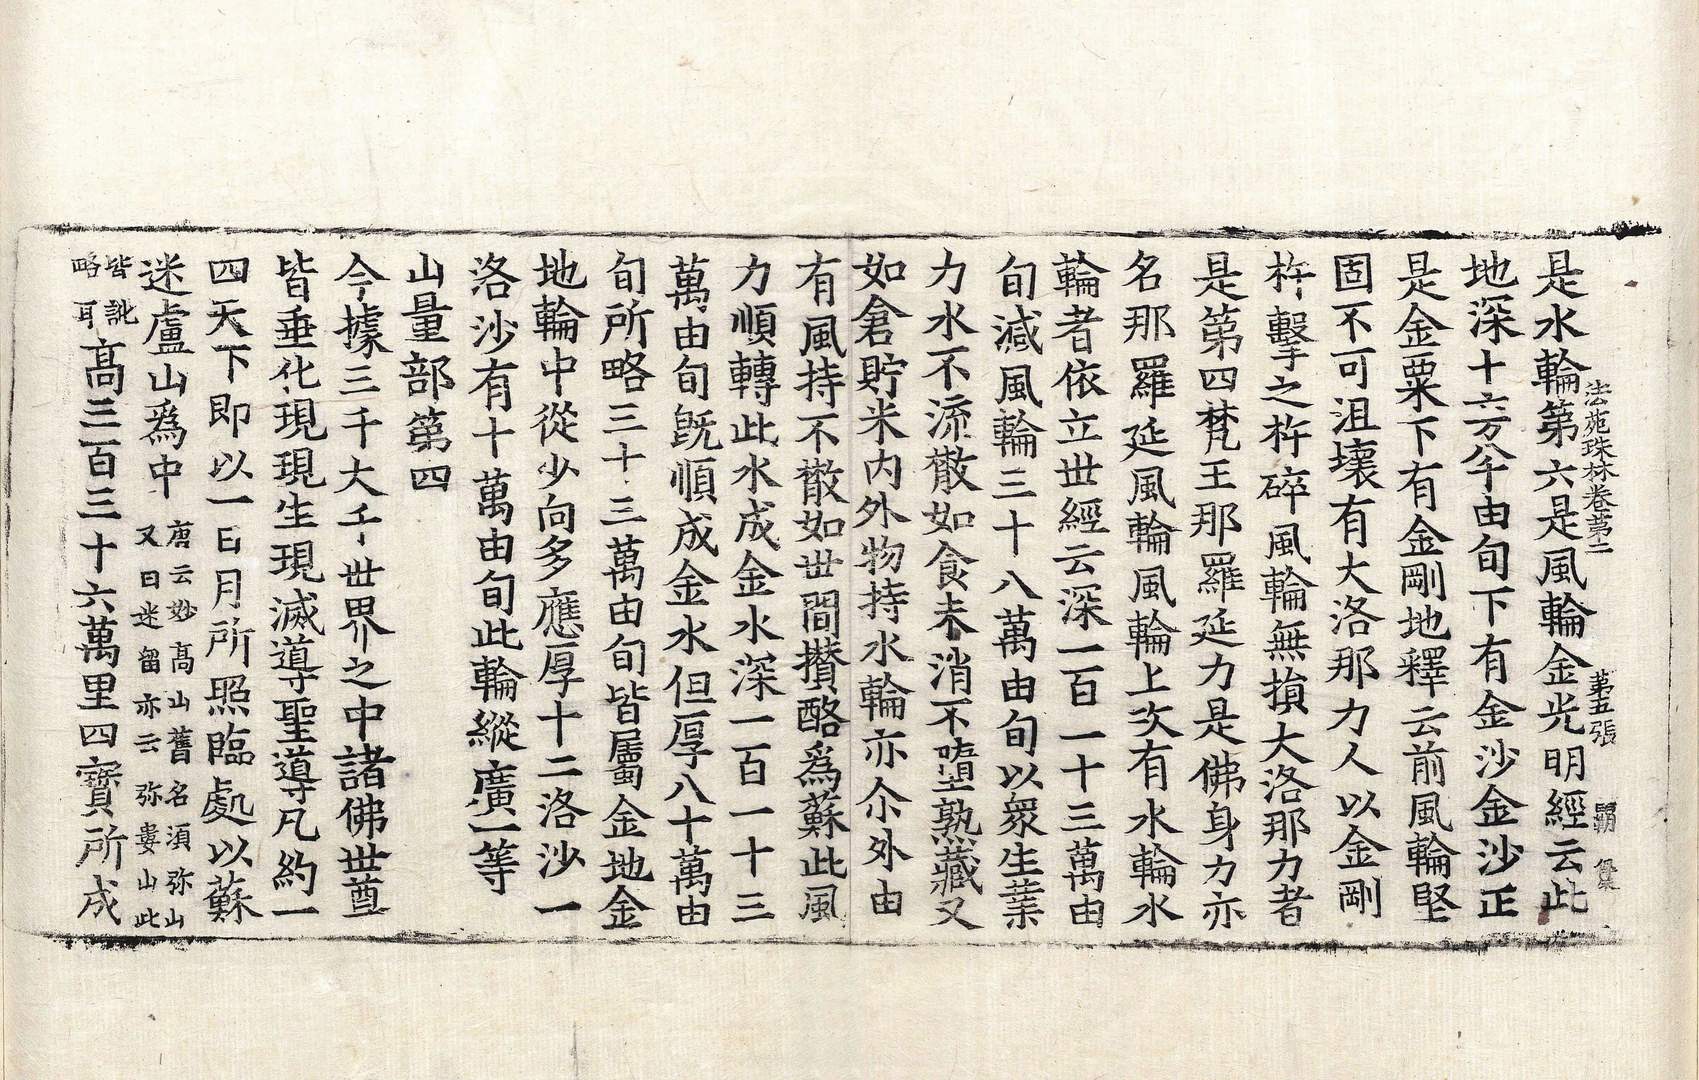 法苑珠林卷第二 第五張 覇
是水輪第六是風輪金光明經云此
地深十六万八千由旬下有金沙金沙正
是金粟下有金剛地釋云前風輪堅
固不可沮壞有大洛那力人以金剛
杵擊之杵碎風輪無損大洛那力者
是第四梵王那羅延力是佛身力亦
名那羅延風輪風輪上次有水輪水
輪者依立世經云深一百一十三萬由
旬減風輪三十八萬由旬以衆生業
力水不流散如食未消不墮熟藏又
如倉貯米內外物持水輪亦尒外由
有風持不散如世間攅酪爲蘇此風
力順轉此水成金水深一百一十三
萬由旬旣順成金水但厚八十萬由
旬所略三十三萬由旬皆屬金地金
地輪中從少向多應厚十二洛沙一
洛沙有十萬由旬此輪縱廣一等
山量部第四
今據三千大千世界之中諸佛世尊
皆垂化現現生現滅導聖導凡約一
四天下即以一日月所照臨處以蘇
迷盧山爲中 唐云妙高山舊名須弥山
又曰迷留亦云弥婁山此
皆訛
略耳 高三百三十六萬里四寶所成